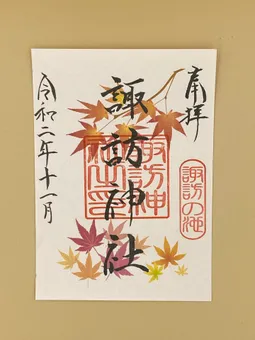 奉拝
諏訪の
諏訪神社
諏訪神
社之印
令和二年十一月